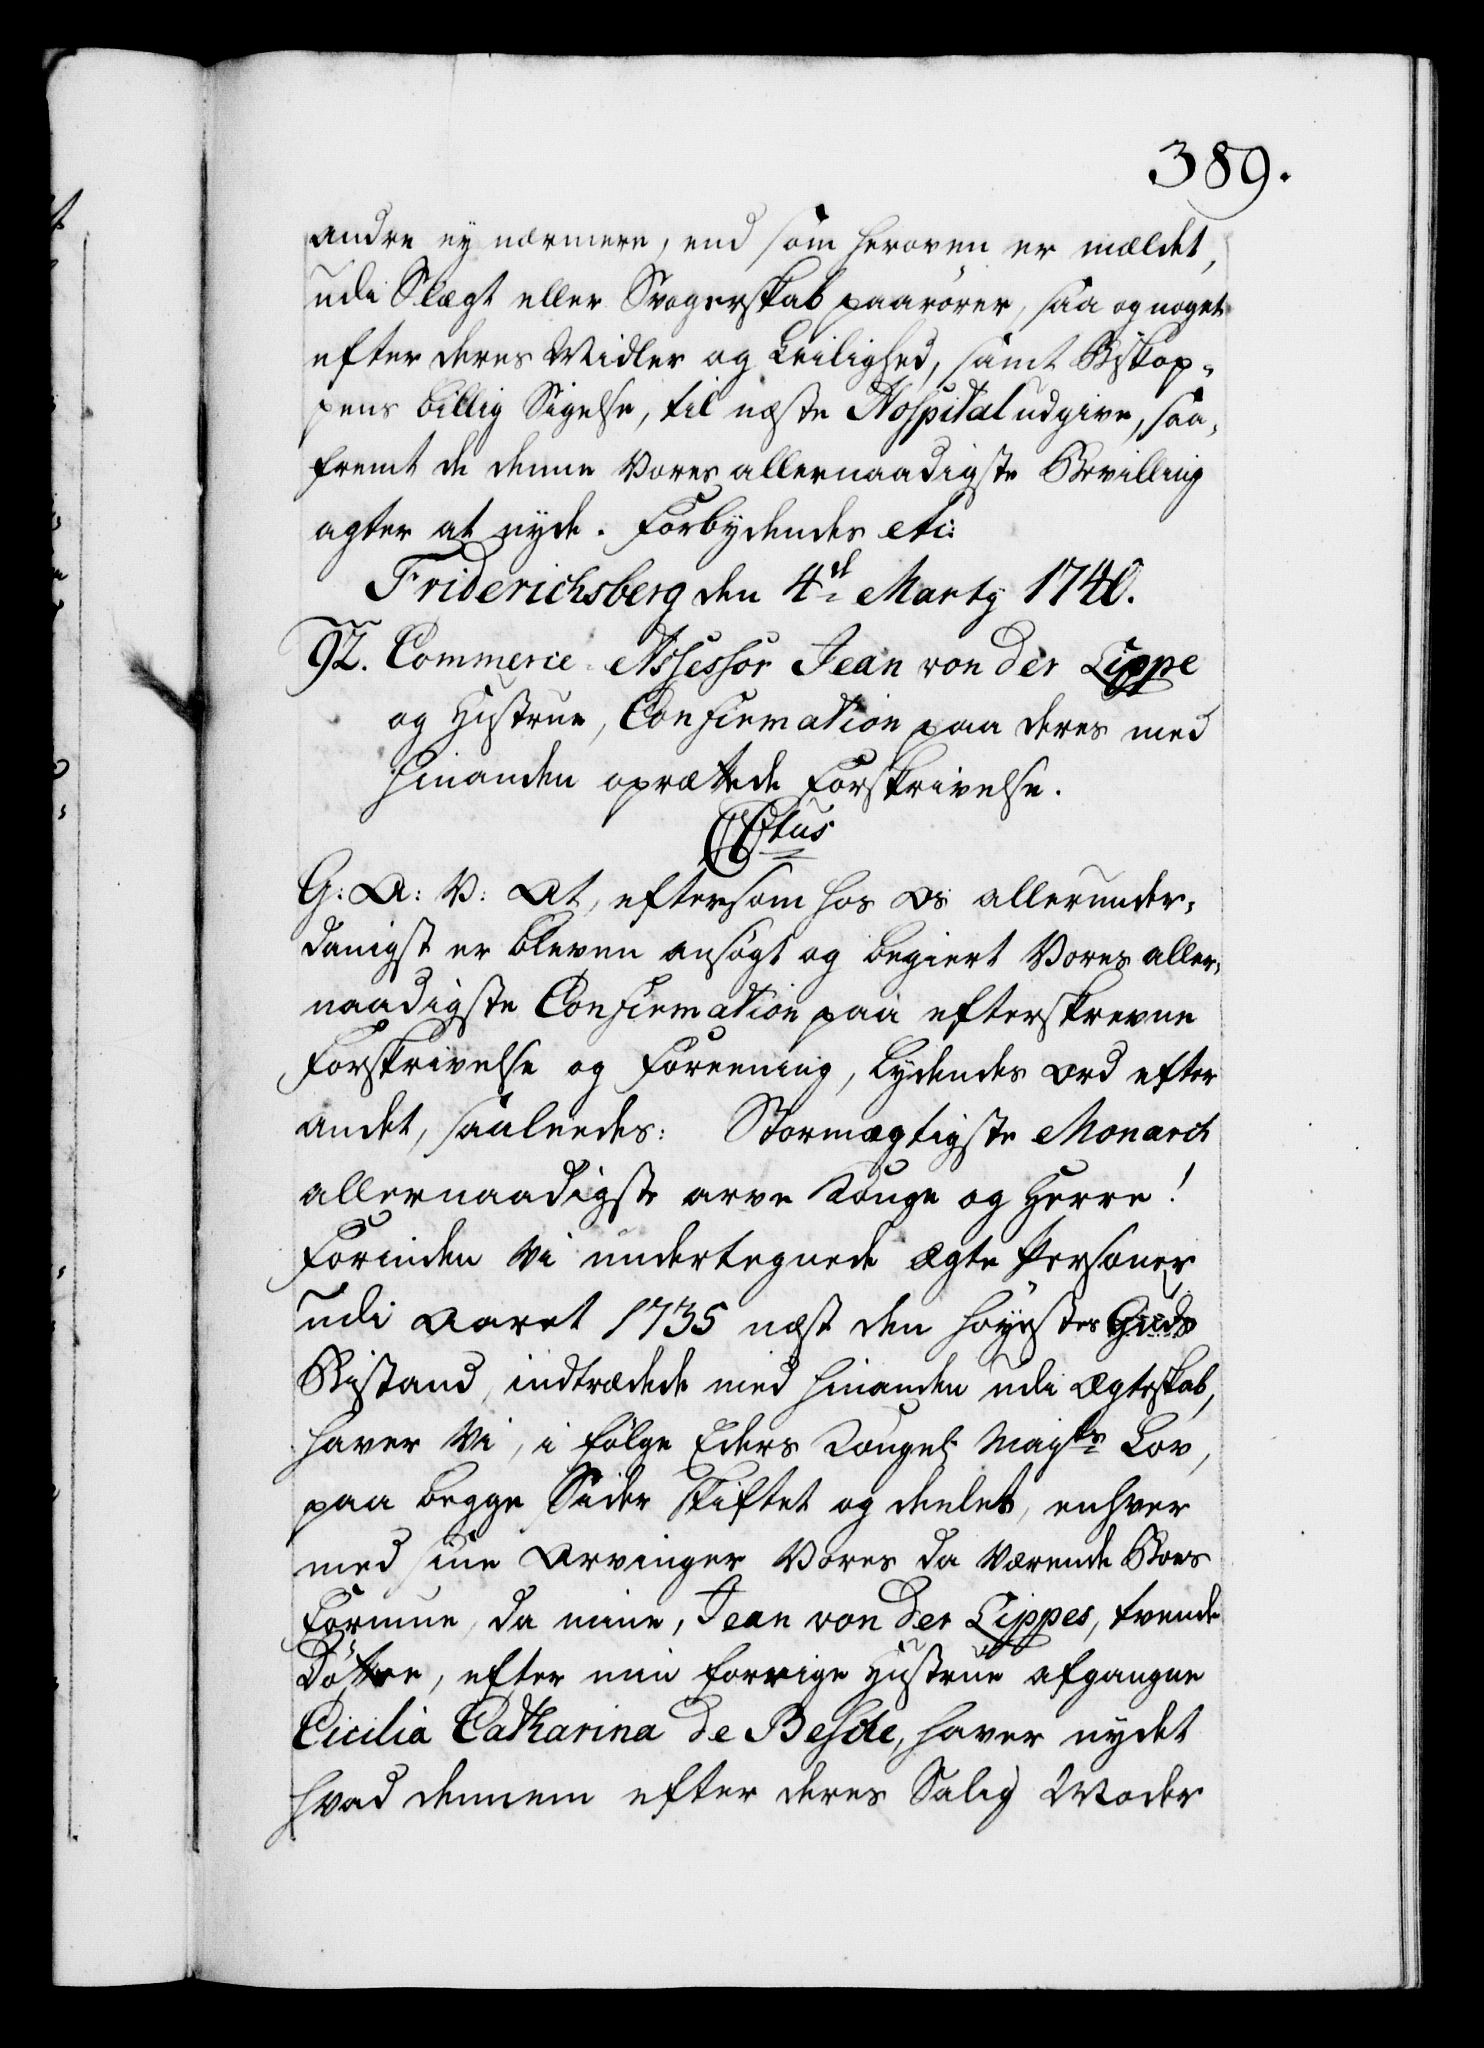 389.
andre ey nærmere, end som heroven er mældet,
udi Slegt eller Svogerskab paarörer, saa og noget
efter deres Midler og Leilighed, samt Biskop-
pens billig Sigelse, til næste Hospital udgive, saa-
fremt de denne Vores allernaadigste Bevilling
agter at nyde. Forbydendes etc:
Friderichsberg den 4de Marty 1740.
92. Commerce-Assessor Jean von der Lippe
og Hustrue, Confirmation paa deres med
hinanden oprættede Forskrivelse.
C6tus
G: A: V: At, eftersom hos Os allerunder-
danigst er bleven ansögt og begiert Vores aller-
naadigste Confirmation paa efterskrevne
Forskrivelse og Foreening, lydendes Ord efter
andet, saaleedes: Stormægtigste Monarch
allernaadigste arve Konge og Herre!
Forinden Vi undertegnede Ægte Personer
udi Aaret 1735 næst den höyestes Guds
Bistand, indtrædede med hinanden udi Ægteskab,
haver Vi, i fölge Eders Kongel: Mayts Lov,
paa begge Sider skiftet og deelet, enhver
med sine Arvinger Vores da værende Boes
Formue, da mine, Jean von der Lippes, tvende
Döttre, efter min forrige Hustrue afgangne
Cicilia Catharina de Besche, haver nydet
hvad dennem efter deres Salig Moder